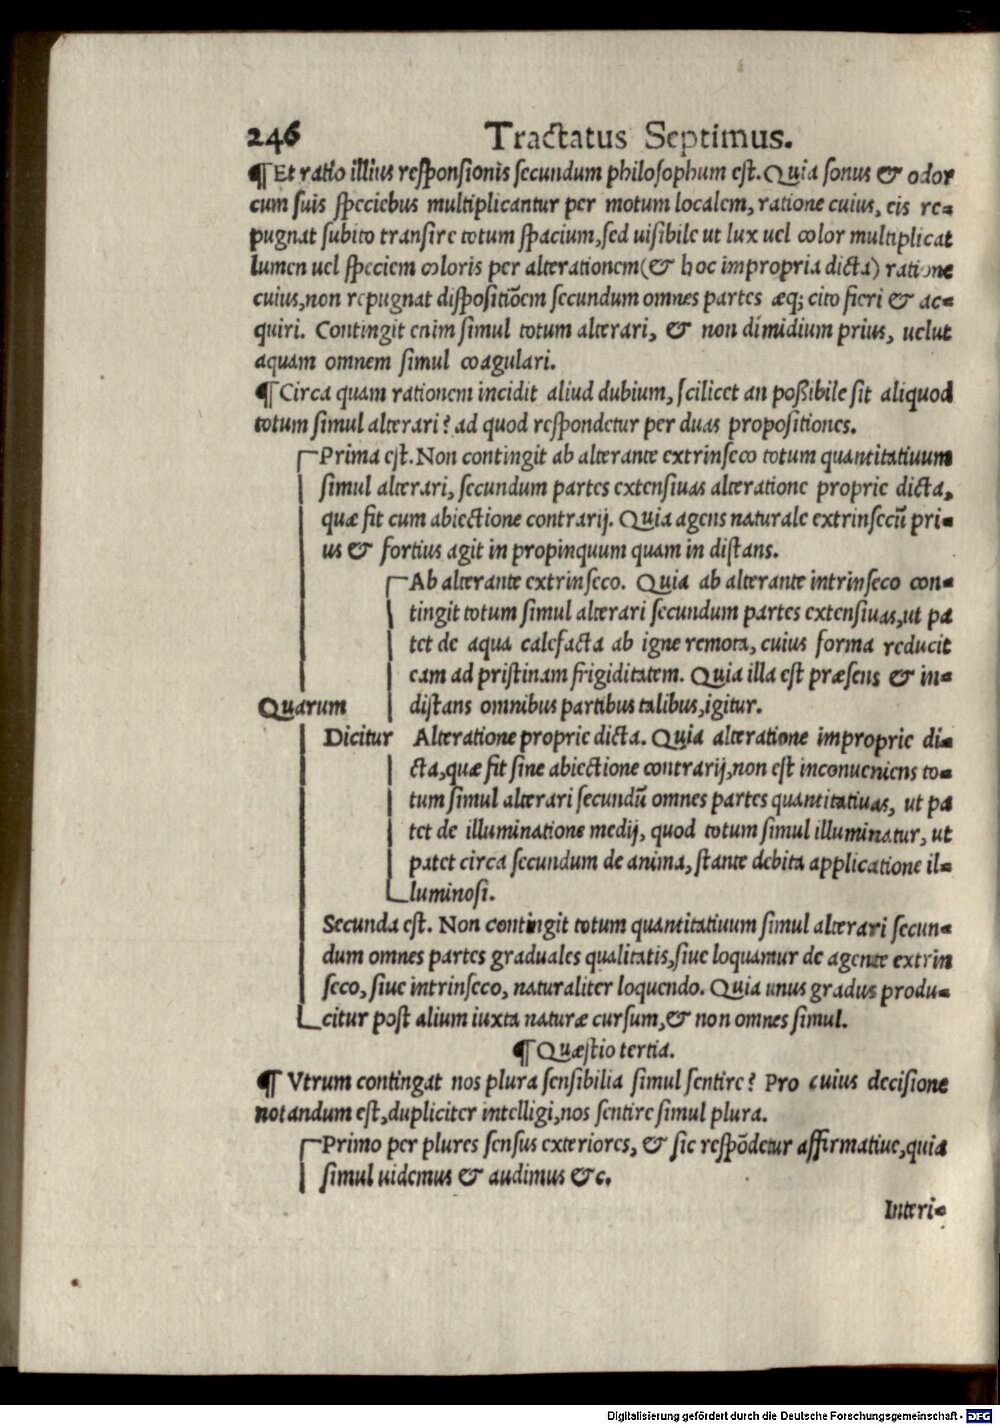 246 Tractatus Septimus.
¶ Et ratio illius responsionis secundum philosophum est. Quia sonus & odor
cum suis speciebus multiplicantur per motum localem, ratione cuius, eis re-
pugnat subito transire totum spacium, sed uisibile ut lux uel color multiplicat
lumen uel speciem coloris per alterationem (& hoc impropria dicta) ratione
cuius, non repugnat dispositiõem secundum omnes partes æq; cito fieri & ac-
quiri. Contingit enim simul totum alterari, & non dimidium prius, uelut
aquam omnem simul coagulari.
¶ Circa quam rationem incidit aliud dubium, scilicet an poßibile sit aliquod
totum simul alterari? ad quod respondetur per duas propositiones.
Prima est. Non contingit ab alterante extrinseco totum quantitatiuum
simul alterari, secundum partes extensiuas alteratione proprie dicta,
quæ fit cum abiectione contrarij. Quia agens naturale extrinsecũ pri-
us & fortius agit in propinquum quam in distans.
Ab alterante extrinseco. Quia ab alterante intrinseco con-
tingit totum simul alterari secundum partes extensiuas, ut pa
tet de aqua calefacta ab igne remota, cuius forma reducit
eam ad pristinam frigiditatem. Quia illa est præsens & in-
Quarum distans omnibus partibus talibus, igitur.
Dicitur Alteratione proprie dicta. Quia alteratione improprie di-
cta, quæ fit sine abiectione contrarij, non est inconueniens to-
tum simul alterari secundũ omnes partes quantitatiuas, ut pa
tet de illuminatione medij, quod totum simul illuminatur, ut
patet circa secundum de anima, stante debita applicatione il-
luminosi.
Secunda est. Non contingit totum quantitatiuum simul alterari secun-
dum omnes partes graduales qualitatis, siue loquamur de agente extrin
seco, siue intrinseco, naturaliter loquendo. Quia unus gradus produ-
citur post alium iuxta naturæ cursum, & non omnes simul.
¶ Quæstio tertia.
¶ Vtrum contingat nos plura sensibilia simul sentire? Pro cuius decisione
notandum est, dupliciter intelligi, nos sentire simul plura.
Primo per plures sensus exteriores, & sic respõdetur affirmatiue, quia
simul uidemus & audimus &c.
Interi-
Digitalisierung gefördert durch die Deutsche Forschungsgemeinschaft - DFG